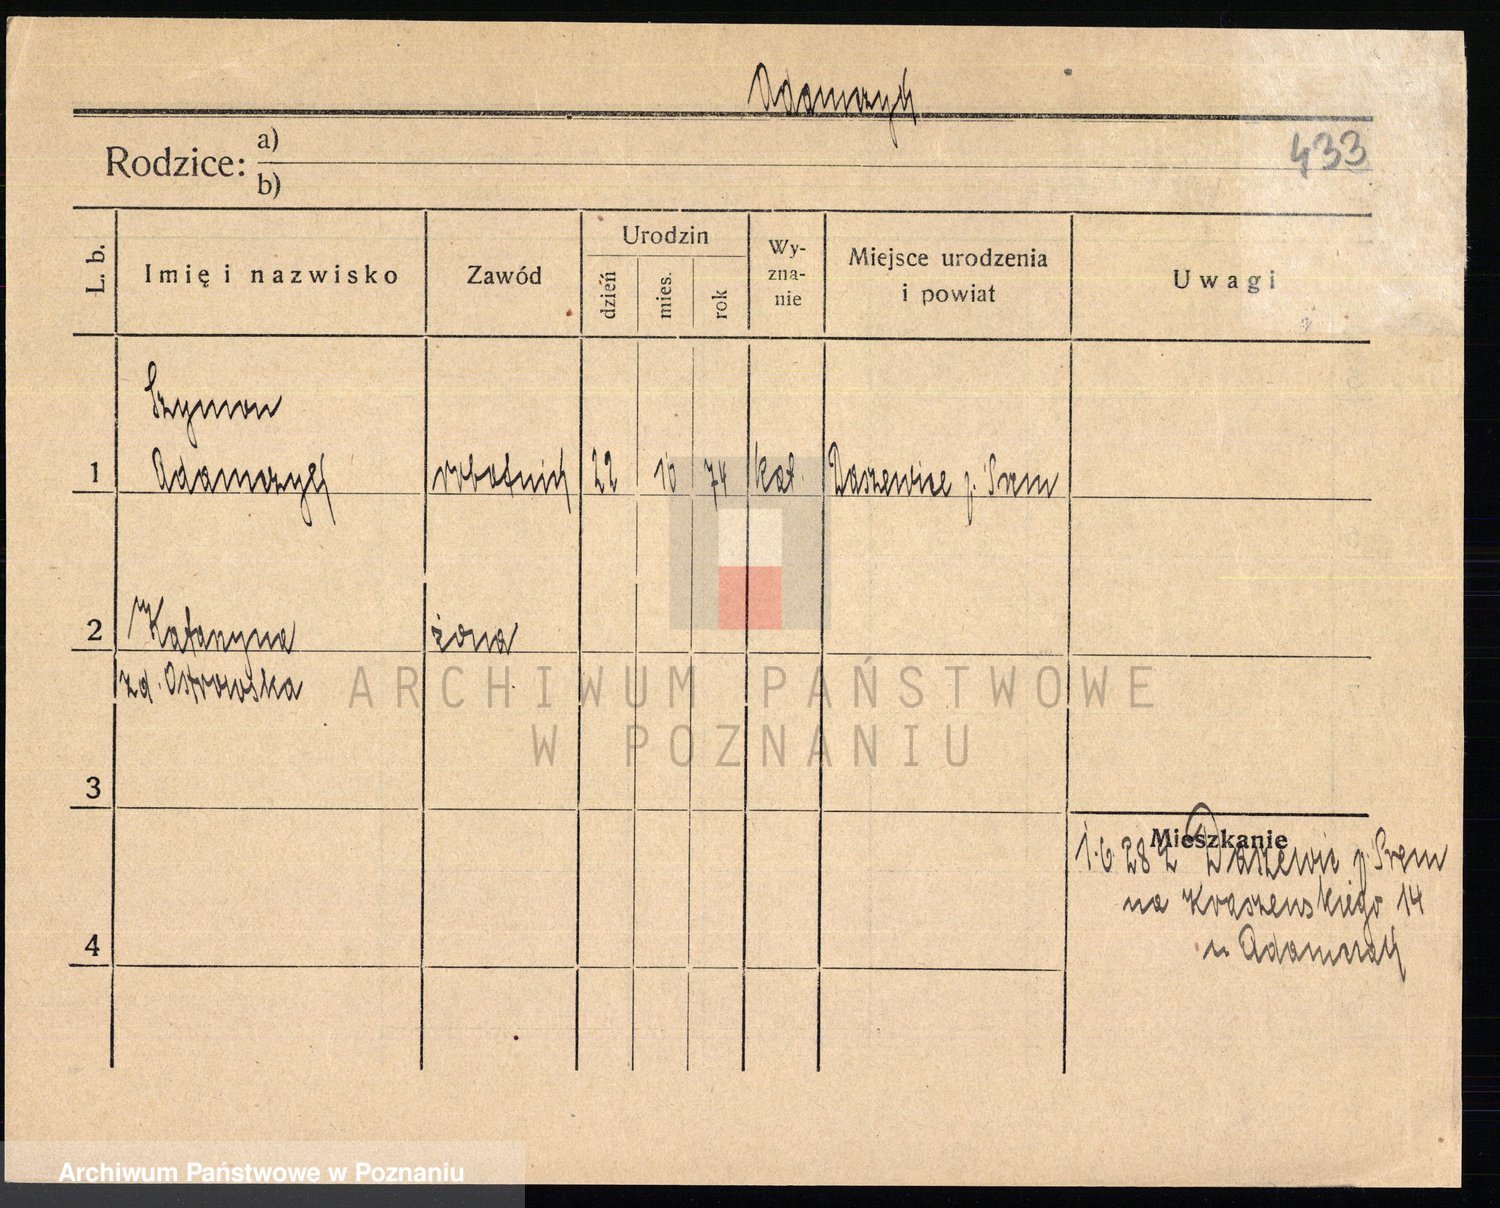 Adamczyk
433
Rodzice: a)
b)
L. b.
Imię i nazwisko
Zawód
Urodzin
dzień
mies.
rok
Wy-
zna-
nie
Miejsce urodzenia
i powiat
Uwagi
Szymon
1 Adamczyk robotnik 22 10 74 kat. Daszewice p. Śrem
2 Katarzyna żona
zd. Ostrowska
3
Mieszkanie
1.6.28 z Daszewic p. Śrem
na Kraszewskiego 14
4
u Adamczak
ARCHIWUM PAŃSTWOWE
W POZNANIU
Archiwum Państwowe w Poznaniu